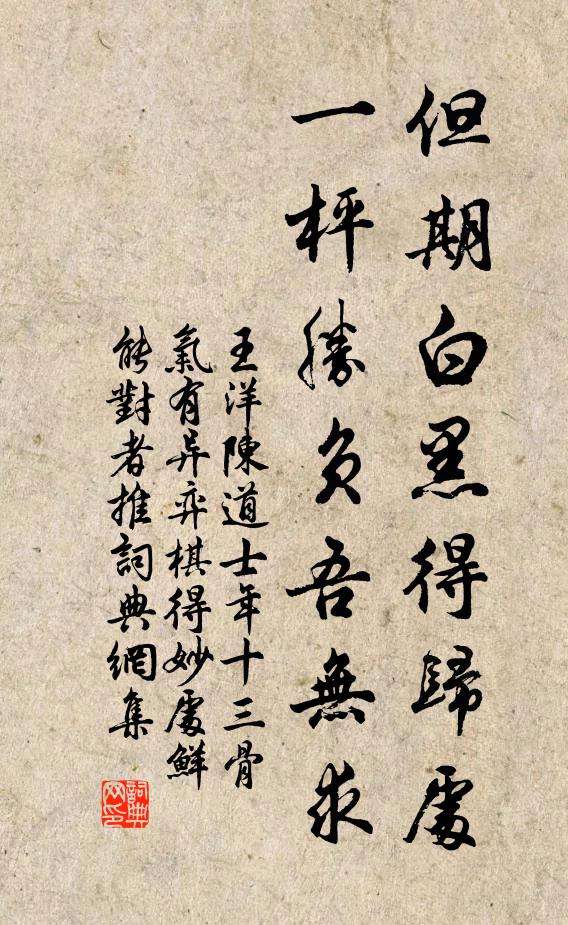 但期白黑得歸處
一枰勝負吾無求
王洋陳道士年十三骨
氣有异弈棋得妙處鮮
能對者推詞典網集
詞典
网印